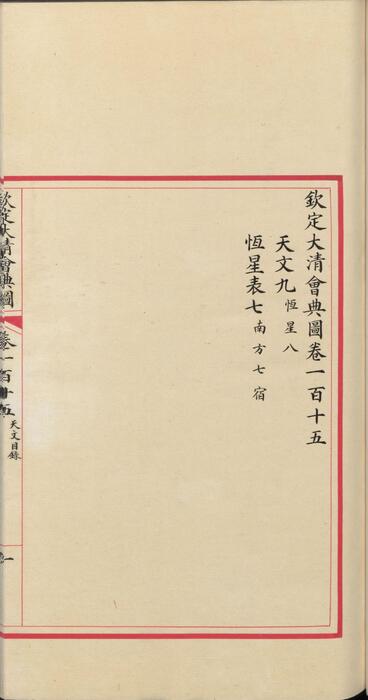 欽定大清會典圖卷一百十五
天文九 恆星八
恆星表七 南方七宿
欽定大清會典圖
卷一百十五
天文目錄
一